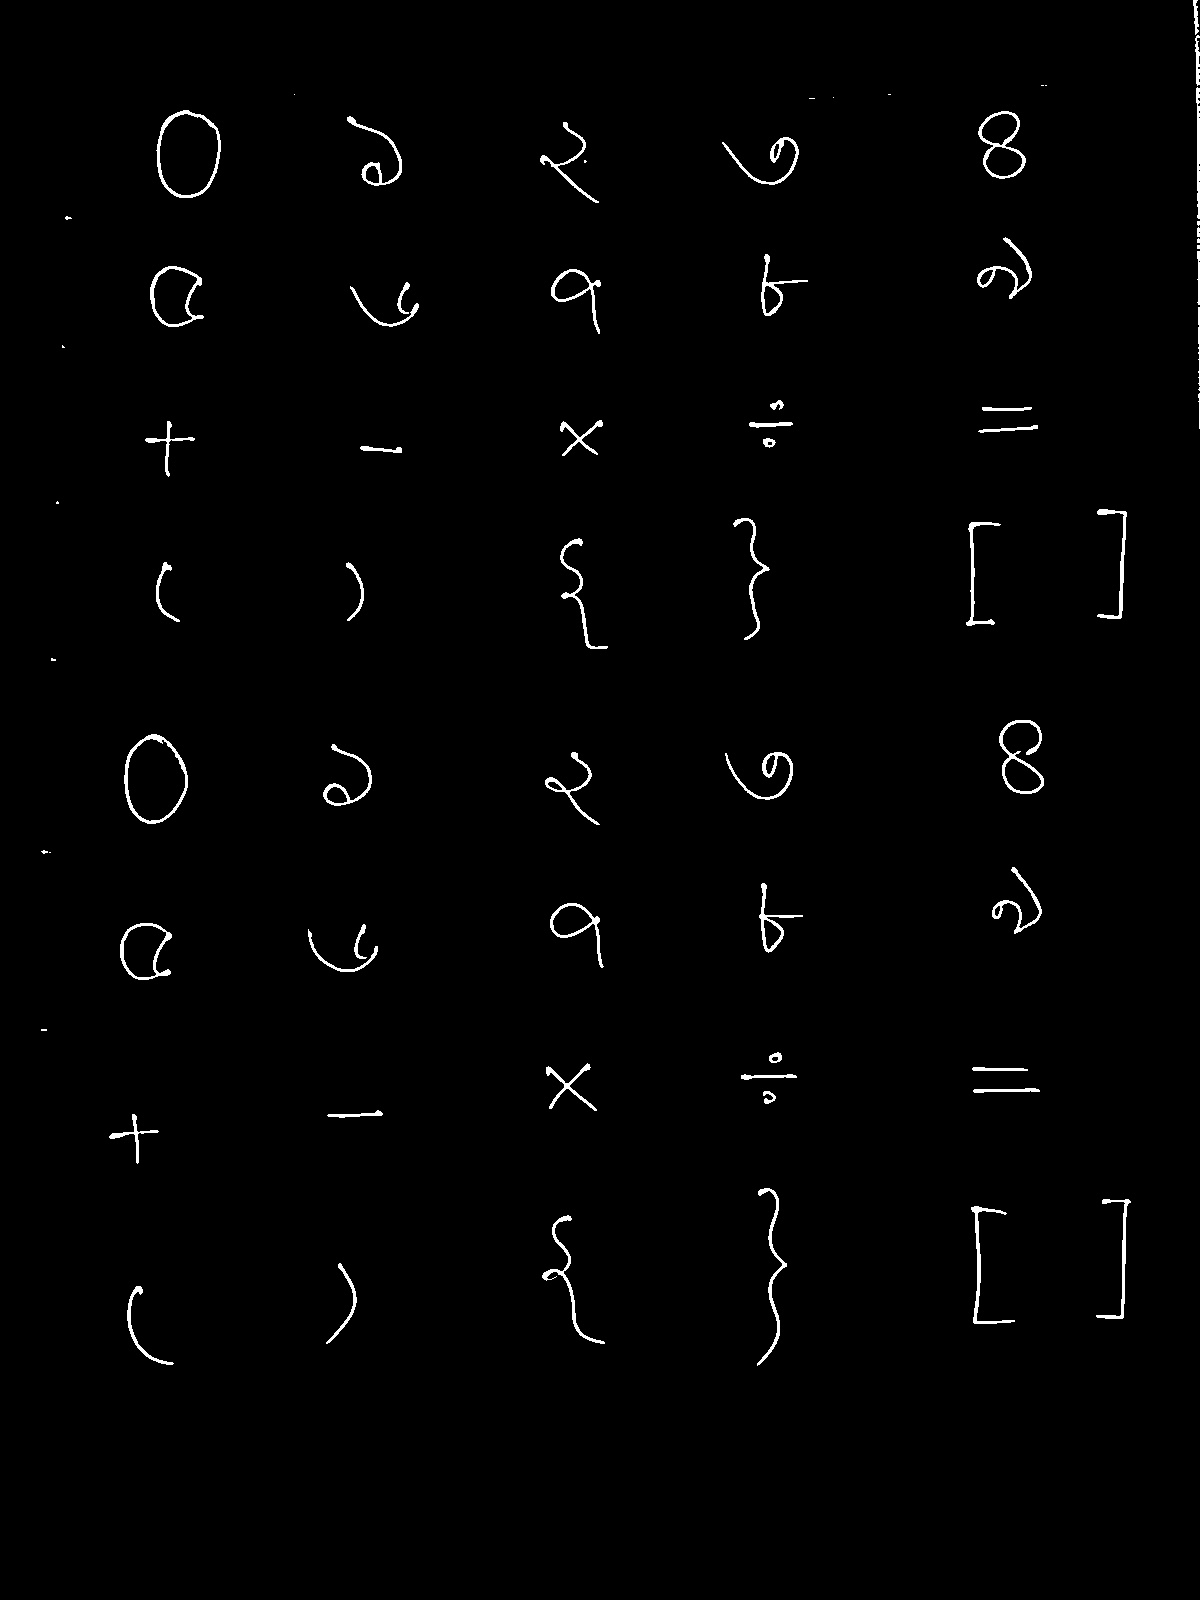 ০ ১ ২ ৩ ৪
৫ ৬ ৭ ৮ ৯
+ - × ÷ =
( ) { } [ ]
০ ১ ২ ৩ ৪
৫ ৬ ৭ ৮ ৯
+ - × ÷ =
( ) { } [ ]